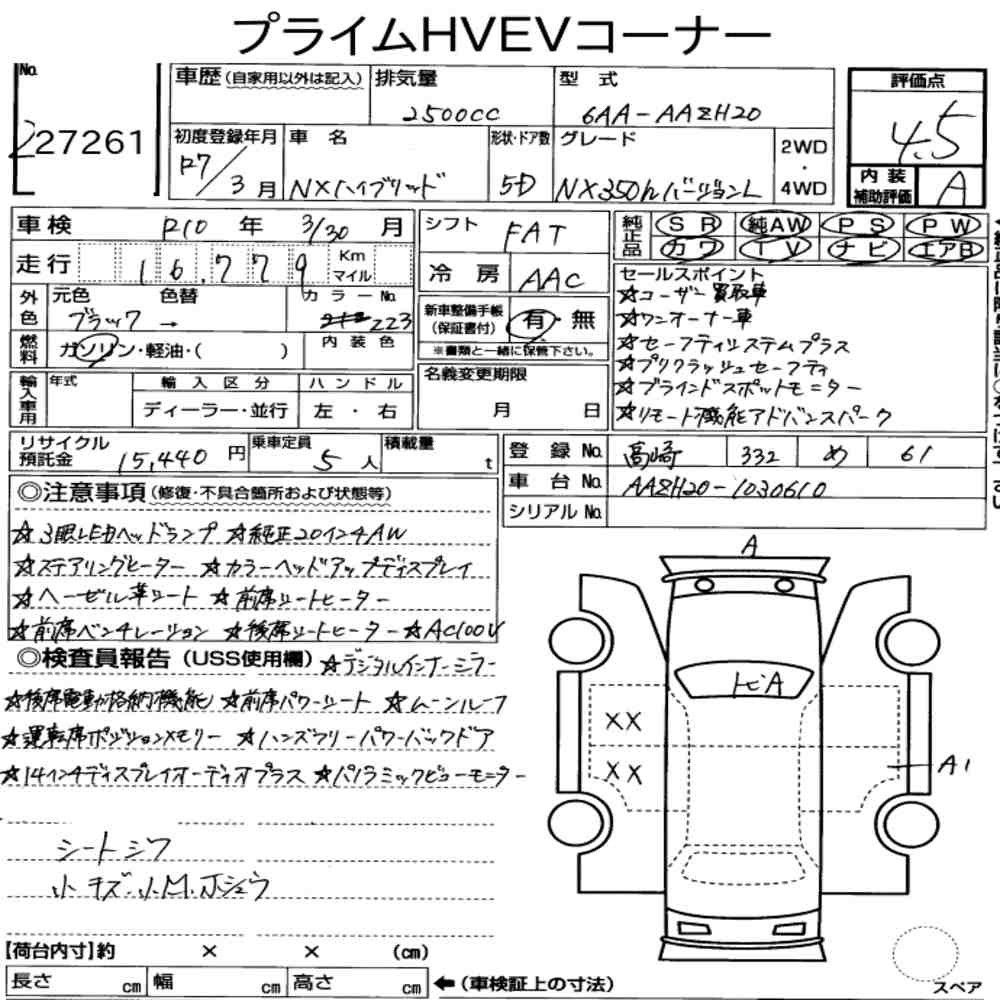 プライムHVEVコーナー
No.
27261
車歴(自家用以外は記入)
排気量
2500CC
型 式
6AA-AAZH20
評価点
4.5
初度登録年月
R7/3月
車 名
NXハイブリッド
形状・ドア数
5D
グレード
NX350hバージョンL
2WD
・
4WD
内 装
補助評価
A
車検 R10 年 3/30 月
シフト
FAT
純正品
SR 純AW PS PW
カワ TV ナビ エアB
走行 16,779 Km
マイル
冷 房
AAC
セールスポイント
☆ユーザー買取車
☆ワンオーナー車
☆セーフティシステムプラス
☆プリクラッシュセーフティ
☆ブラインドスポットモニター
☆リモート機能アドバンスパーク
外色
元色 色替
ブラック →
カラーNo.
223
新車整備手帳
(保証書付)
有・無
※書類と一緒に保管下さい。
燃料
ガソリン・軽油・( )
内 装 色
輸入車用
年式
輸 入 区 分
ディーラー・並行
ハ ン ド ル
左 ・ 右
名義変更期限
月 日
リサイクル
預託金 15,440 円
乗車定員
5 人
積載量
t
登 録 No. 高崎 332 め 61
車 台 No. AAZH20-1030610
シリアル No.
◎注意事項(修復・不具合箇所および状態等)
☆3眼LEDヘッドランプ ☆純正20インチAW
☆ステアリングヒーター ☆カラーヘッドアップディスプレイ
☆ヘーゼル革シート ☆前席シートヒーター
☆前席ベンチレーション ☆後席シートヒーター ☆AC100V
◎検査員報告(USS使用欄) ☆デジタルインナーミラー
☆後席電動格納機能 ☆前席パワーシート ☆ムーンルーフ
☆運転席ポジションメモリー ☆ハンズフリーパワーバックドア
☆14インチディスプレイオーディオプラス ☆パノラミックビューモニター
シートシワ
小キズ・小M.
A
ヒA
XX
XX
A1
【荷台内寸】約 × × (cm)
長さ cm 幅 cm 高さ cm ←(車検証上の寸法)
スペア